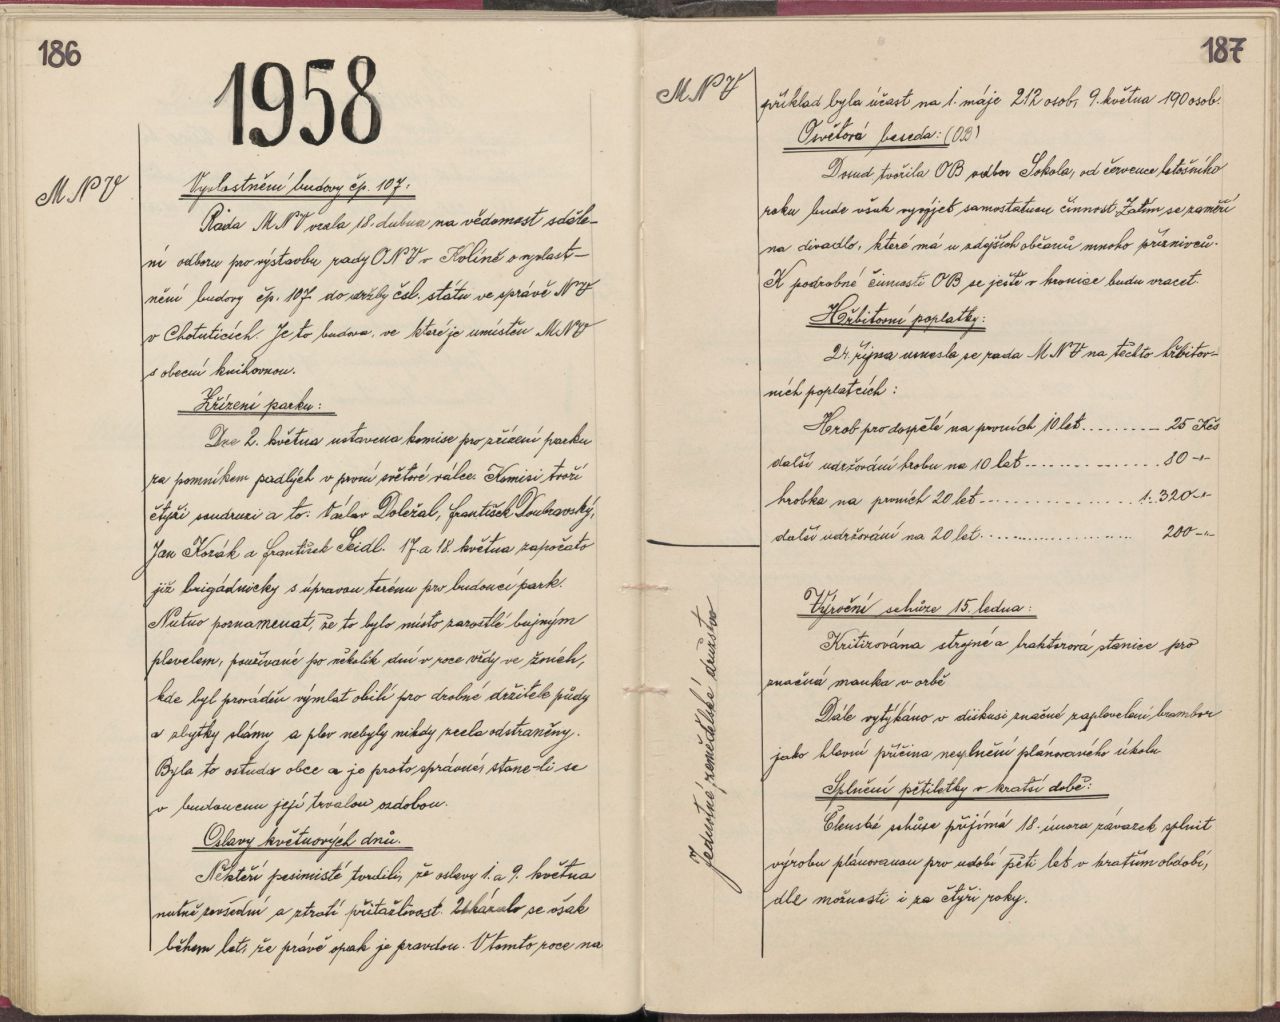 186
1958
MNV
Vyvlastnění budovy čp. 107:
Rada MNV vzala 18. dubna na vědomost sděle-
ní odboru pro výstavbu rady ONV v Kolíně o vyvlast-
nění budovy čp. 107 do držby čsl. státu ve správě NV
v Chotuticích. Je to budova, ve které je umístěn MNV
s obecní knihovnou.
Zřízení parku:
Dne 2. května ustavena komise pro zřízení parku
za pomníkem padlých v první světové válce. Komisi tvoří
čtyři soudruzi a to: Václav Doležal, František Doubravský,
Jan Kozák a František Seidl. 17. a 18. května započato
již brigádnicky s úpravou terénu pro budoucí park.
Nutno poznamenat, že to bylo místo zarostlé bujným
plevelem, používané po několik dní v roce vždy ve žních,
kde byl prováděn výmlat obilí pro drobné držitele půdy
a zbytky slámy a plev nebyly nikdy zcela odstraněny.
Byla to ostuda obce a je proto správné, stane-li se
v budoucnu její trvalou ozdobou.
Oslavy květnových dnů.
Někteří pesimisté tvrdili, že oslavy 1. a 9. května
nutně zevšední a ztratí přitažlivost. Ukázalo se však
během let, že právě opak je pravdou. V tomto roce na
187
MNV
příklad byla účast na 1. máje 212 osob, 9. května 190 osob.
Osvětová beseda: (OB)
Dosud tvořila OB odbor Sokola, od července letošního
roku bude však vyvíjet samostatnou činnost. Zatím se zaměří
na divadlo, které má u zdejších občanů mnoho příznivců.
K podrobné činnosti OB se ještě v kronice budu vracet.
Hřbitovní poplatky:
24. října usnesla se rada MNV na těchto hřbitov-
ních poplatcích:
Hrob pro dospělé na prvních 10 let.......... 25 Kčs
další udržování hrobu na 10 let.............. 80 -"-
hrobka na prvních 20 let.............. 1.320 -"-
další udržování na 20 let.............. 200 -"-
Jednotné zemědělské družstvo
Výroční schůze 15. ledna:
Kritizována strojně a traktorová stanice pro
značná manka v orbě
Dále vytýkáno v diskusi značné zaplevelení brambor
jako hlavní příčina neplnění plánovaného úkolu
Splnění pětiletky v kratší době:
Členská schůze přijímá 18. února závazek splnit
výrobu plánovanou pro údobí pěti let v kratším období,
dle možnosti i za čtyři roky.